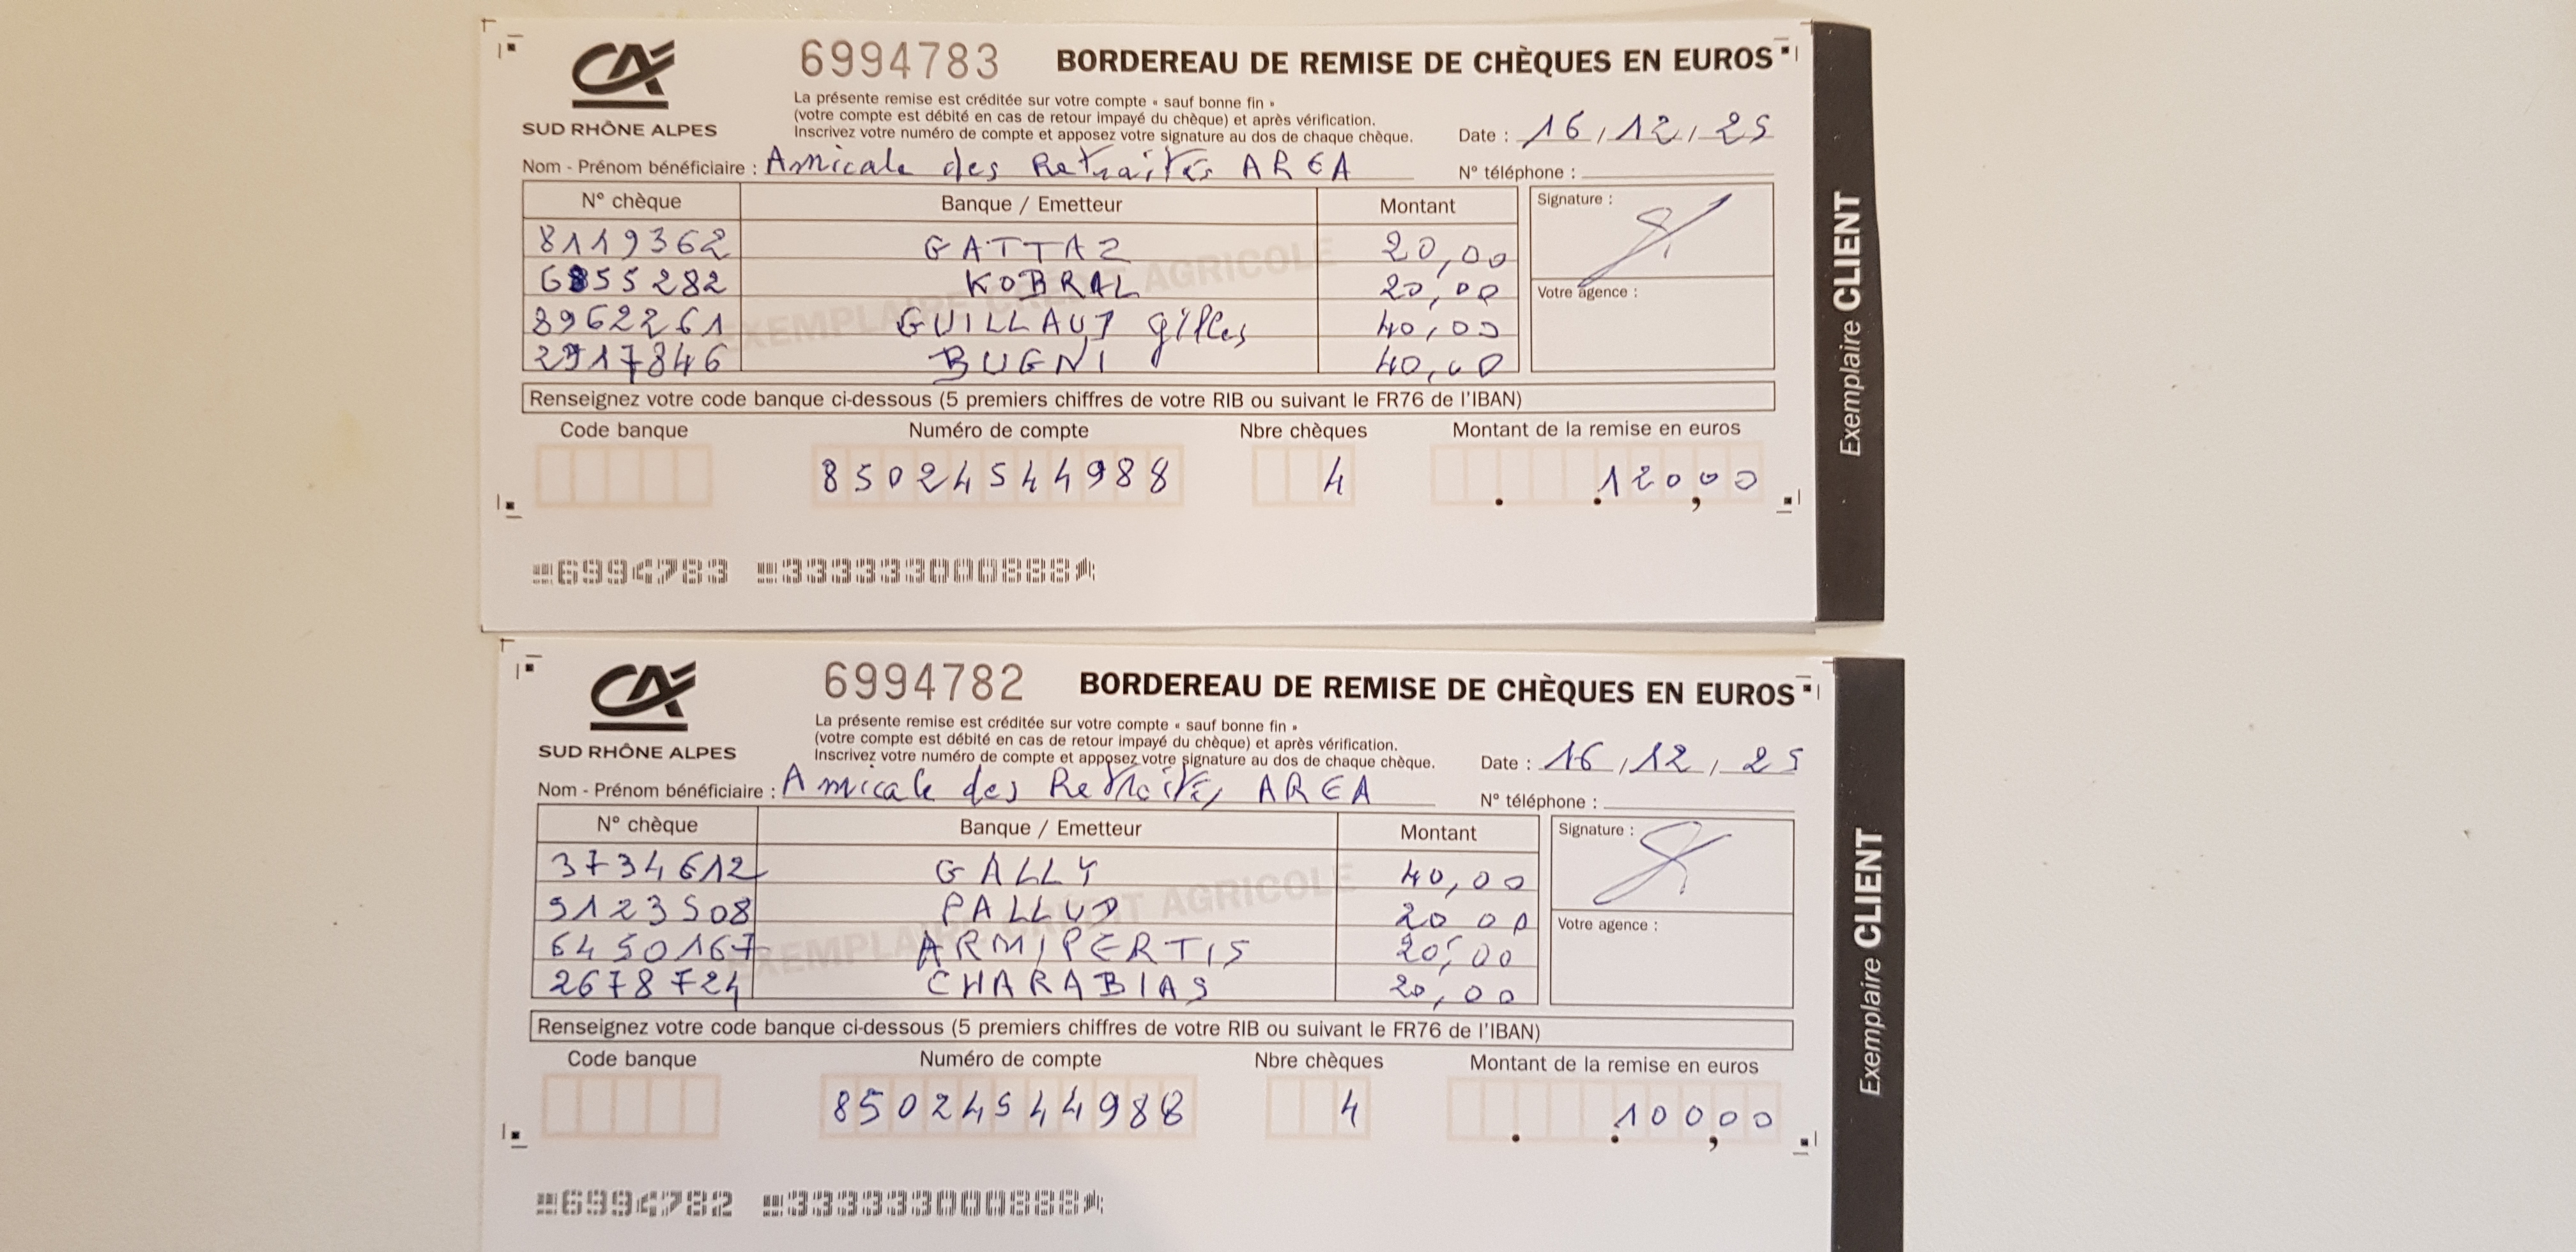 CA
6994783 BORDEREAU DE REMISE DE CHÈQUES EN EUROS
SUD RHÔNE ALPES
La présente remise est créditée sur votre compte « sauf bonne fin »
(votre compte est débité en cas de retour impayé du chèque) et après vérification.
Inscrivez votre numéro de compte et apposez votre signature au dos de chaque chèque.
Date : 16/12/25
Nom - Prénom bénéficiaire : Amicale des Retraités AREA
N° téléphone :
N° chèque Banque / Emetteur Montant Signature :
8119362 GATTAZ 20,00
6855282 KOBRAL 20,00
Votre agence :
8962261 GUILLAUD Gilles 40,00
2917846 BUGNI 40,00
EXEMPLAIRE CREDIT AGRICOLE
Renseignez votre code banque ci-dessous (5 premiers chiffres de votre RIB ou suivant le FR76 de l'IBAN)
Code banque Numéro de compte Nbre chèques Montant de la remise en euros
85024544988 4 120,00
6994783 333333000888
Exemplaire CLIENT
CA
6994782 BORDEREAU DE REMISE DE CHÈQUES EN EUROS
SUD RHÔNE ALPES
La présente remise est créditée sur votre compte « sauf bonne fin »
(votre compte est débité en cas de retour impayé du chèque) et après vérification.
Inscrivez votre numéro de compte et apposez votre signature au dos de chaque chèque.
Date : 16/12/25
Nom - Prénom bénéficiaire : Amicale des Retraités AREA
N° téléphone :
N° chèque Banque / Emetteur Montant Signature :
3734612 GALLY 40,00
9123508 PALLUD 20 00
Votre agence :
6450167 ARMIPERTIS 20,00
2678724 CHARABIAS 20,00
EXEMPLAIRE CREDIT AGRICOLE
Renseignez votre code banque ci-dessous (5 premiers chiffres de votre RIB ou suivant le FR76 de l'IBAN)
Code banque Numéro de compte Nbre chèques Montant de la remise en euros
85024544988 4 100,00
6994782 333333000888
Exemplaire CLIENT